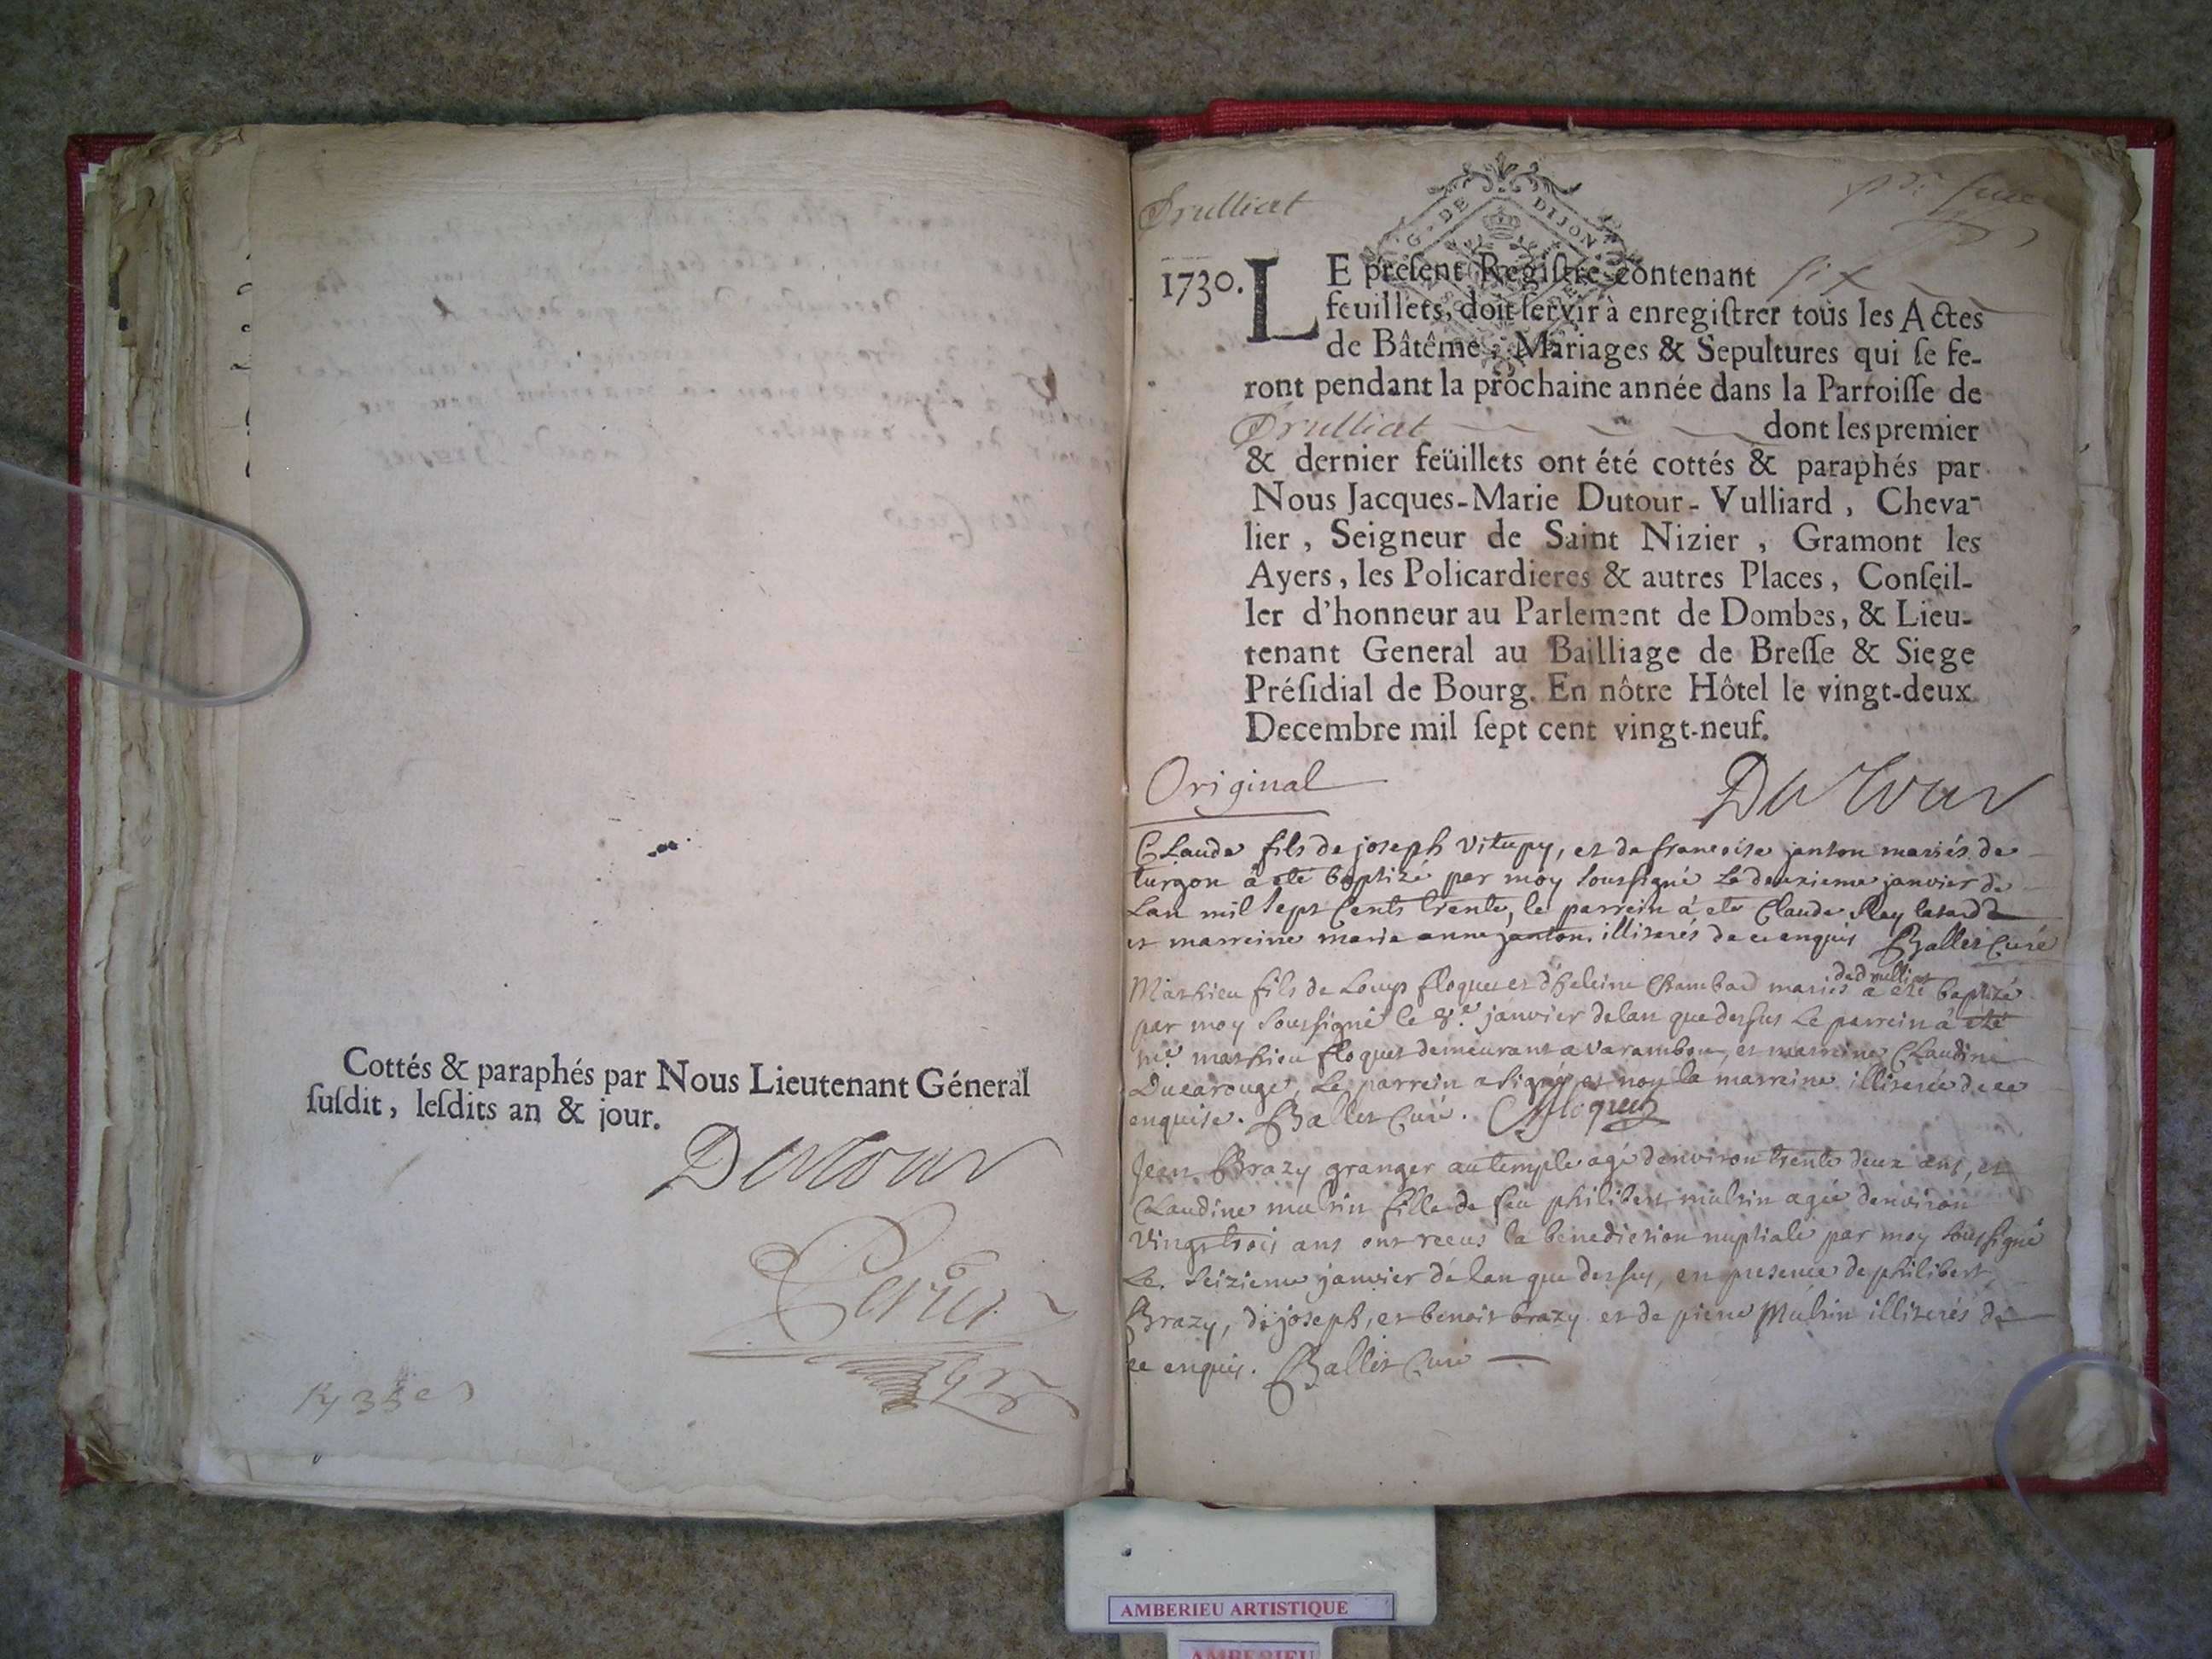 Cottés & paraphés par Nous Lieutenant Géneral
ſuſdit, leſdits an & jour.
Dutour
Druillat
G. DE DIJON
1730. LE preſent Regiſtre contenant ſix
feuillets, doit ſervir à enregiſtrer tous les Actes
de Bâtême, Mariages & Sepultures qui ſe fe-
ront pendant la prochaine année dans la Parroiſſe de
Druillat dont les premier
& dernier feüillets ont été cottés & paraphés par
Nous Jacques-Marie Dutour-Vulliard, Cheva-
lier, Seigneur de Saint Nizier, Gramont les
Ayers, les Policardieres & autres Places, Conſeil-
ler d'honneur au Parlement de Dombes, & Lieu-
tenant General au Bailliage de Breſſe & Siege
Préſidial de Bourg. En nôtre Hôtel le vingt-deux
Decembre mil ſept cent vingt-neuf.
Original
Dutour
Claude fils de joseph vitupy, et de francoise janton mariés de
turgon a eté baptizé par moy soussigné le deuxieme janvier de
lan mil sept cents trente, le parrein á ete Claude Rey
et marreine marie anne janton. illiterés de ce enquis Ballet Curé
de druillat
Mathieu fils de Loup floquet et d'heleine Chambard mariés a eté baptizé
par moy soussigné le 8.e janvier delan que dessus le parrein á eté
me mathieu floquet demeurant a varambon, et marreine Claudine
Ducarouge, Le parrein a signé et non la marreine illiterée de ce
enquise. Ballet Curé. floquet
Jean Brazy granger au temple agé denviron trente deux ans, et
Claudine mulrin fille de feu philibert mulrin agée denviron
vingt trois ans ont receus la benediction nuptiale par moy soussigné
Le seizieme janvier de lan que dessus, en presence de philibert
Brazy, de joseph, et benoit brazy et de pierre Mulrin illiterés de
ce enquis. Ballet Curé
AMBERIEU ARTISTIQUE
AMBERIEU